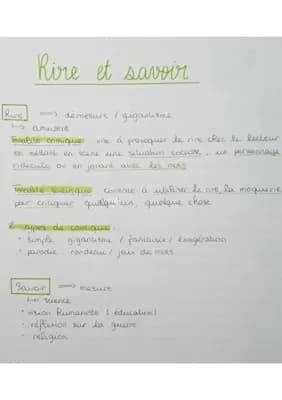 Rire et savoir
Rire => démesure / gigantisme
↳ amusere
Tonalité comique vise à provoquer le rire chez le lecteur
en mettant en scène une situation cocasse, un personnage
ridicule ou en jouant avec les mots
Tonalité satirique consiste à utiliser le rire, la moquerie
pour critiquer quelqu'un, quelque chose
types de comique :
• simple gigantisme / fantaisie / exagération
• parodie / jeu de mots
Savoir => mesure
↳ science
• vision humaniste (éducation)
• réflexion sur la guerre
• religion